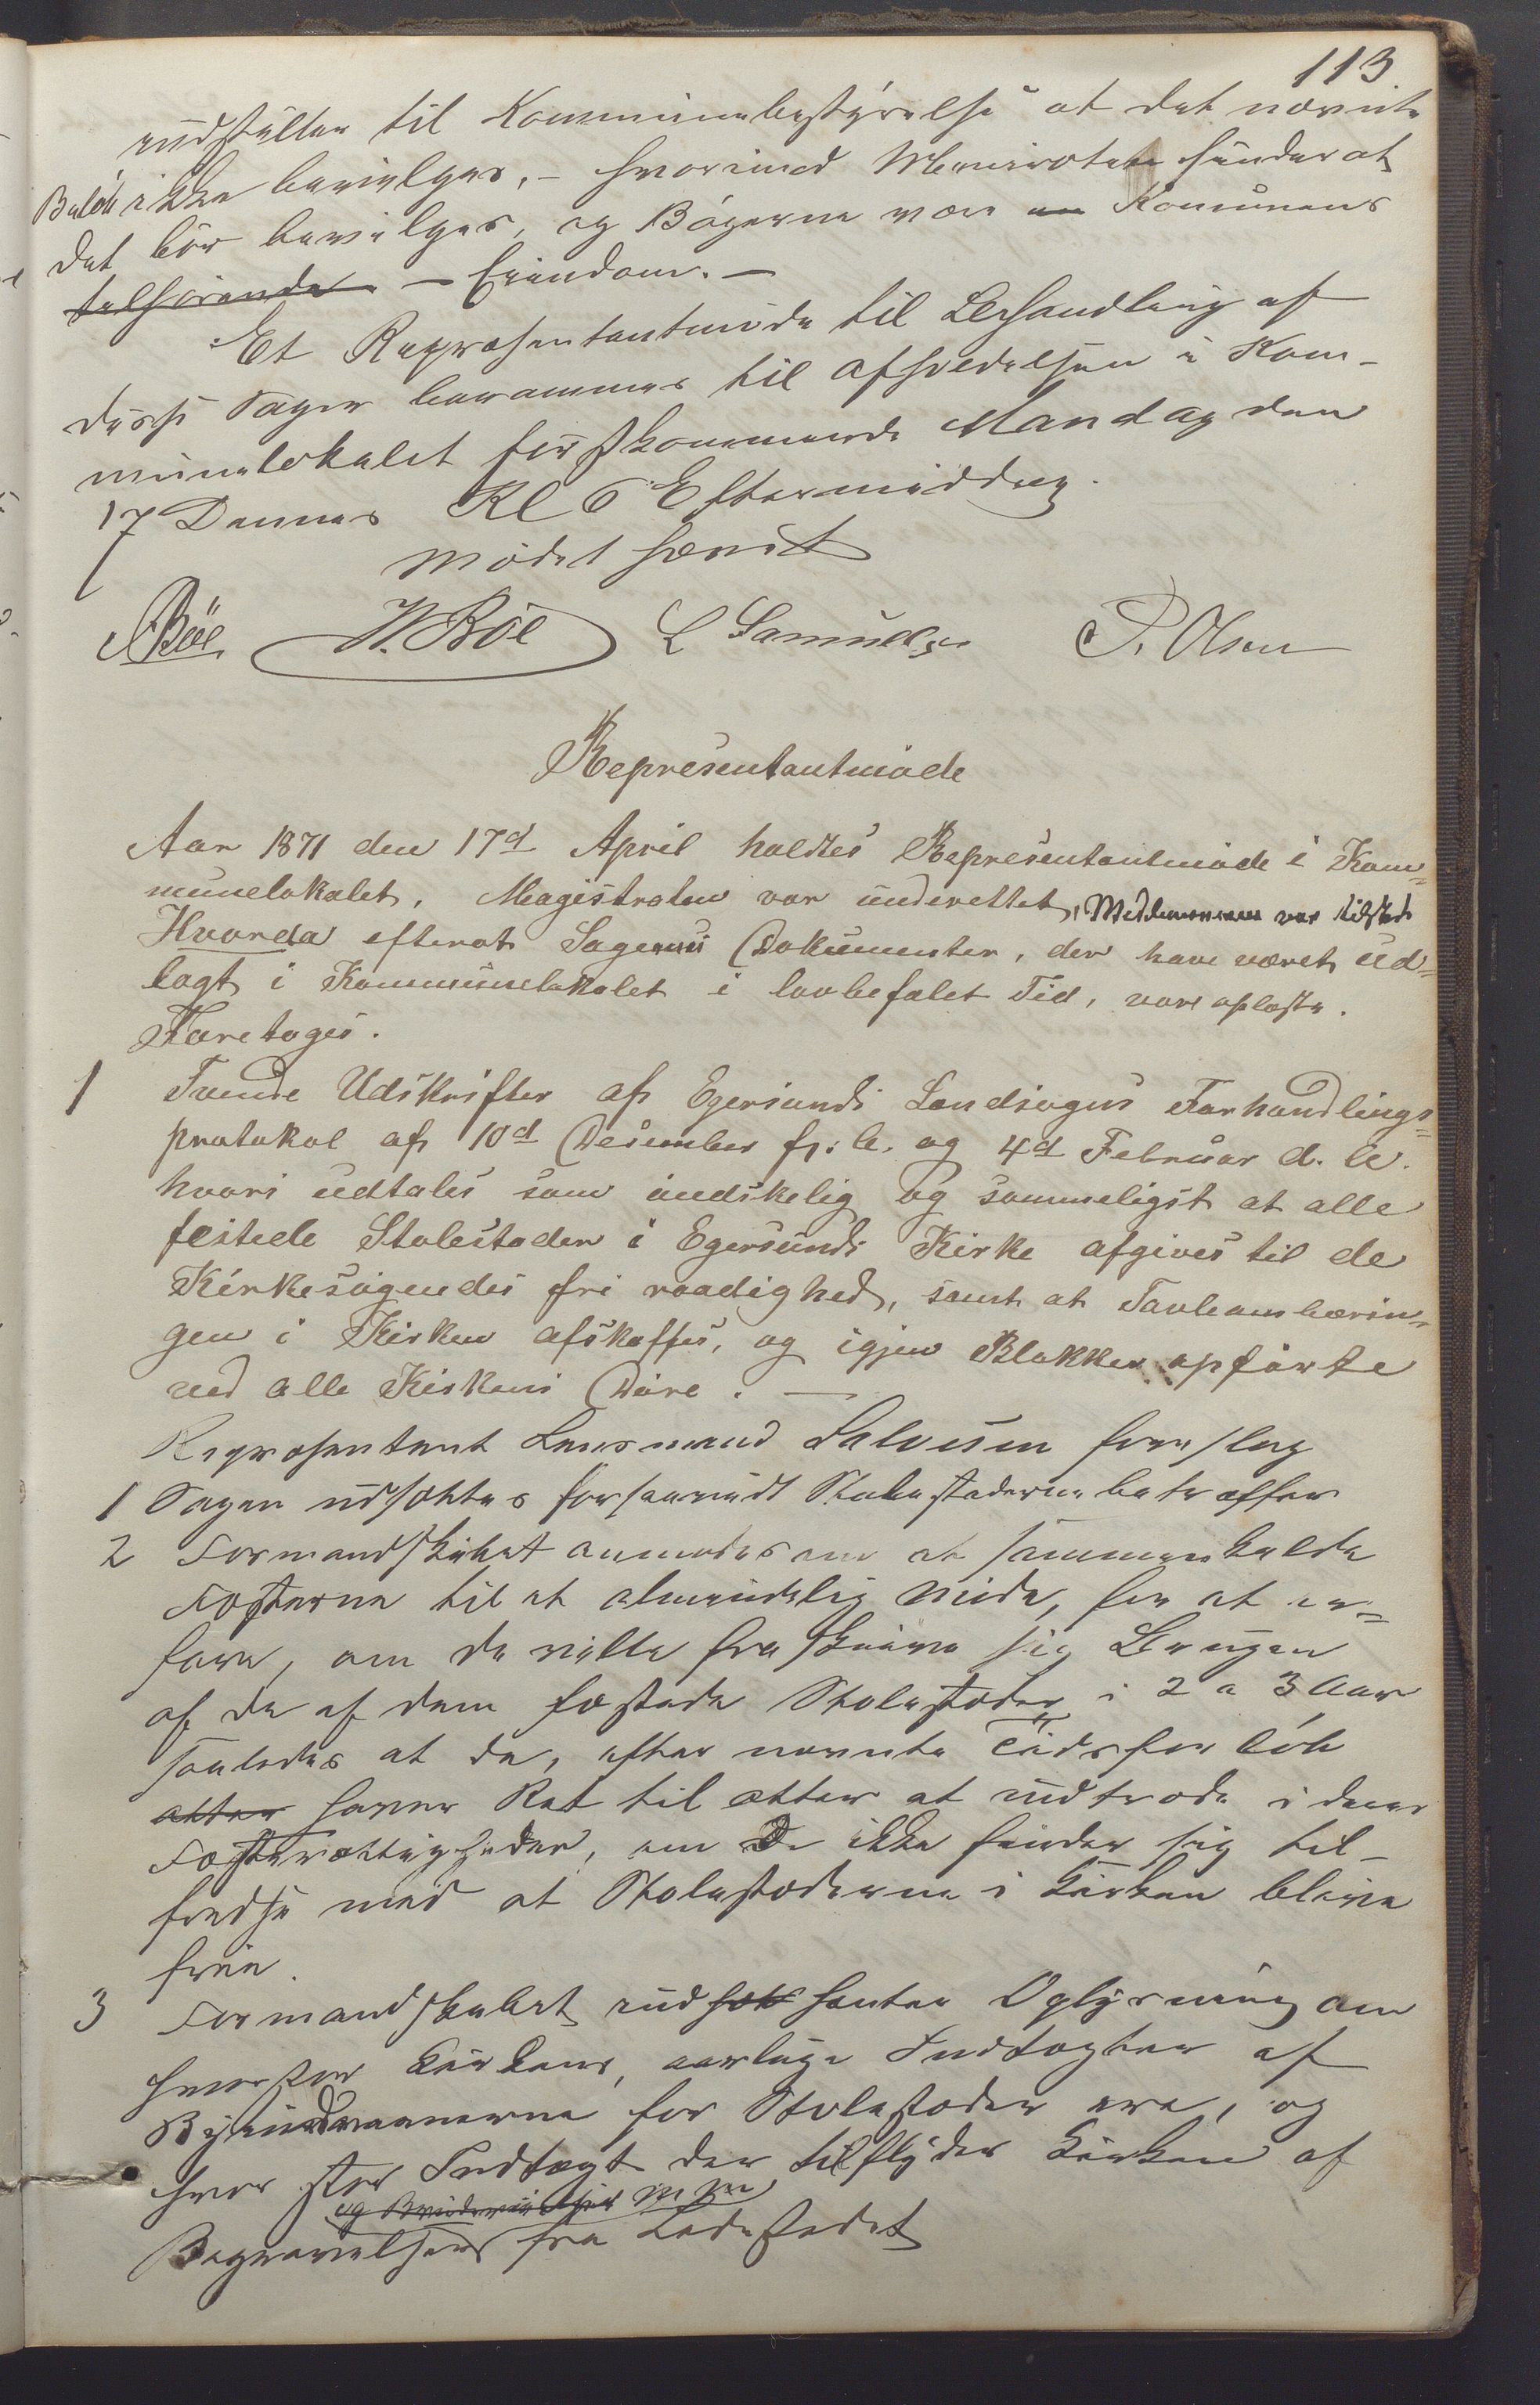 113
indstiller til Kommunebestyrelse at det nævnte
Beløb ikke bevilges, – hvorimod Minoriteten finder at
det bør bevilges, og Bøgerne være en Kommunens
tilhørende – Eiendom. –
Et Repræsentantmøde til Behandling af
disse Sager berammes til afholdelsen i Kom-
munelokalet førstkommende Mandag den
17 Dennes Kl 6 Eftermiddag.
Mødet hævet
Böe W. Böe L Samuelsen P. Olsen
Representantmöde
Aar 1871 den 17d April holdtes Representantmöde i Kom=
munelokalet. Magistraten var underettet, Meddommeren var tilstede
Hvorda efterat Sagens Dokumenter, der have været ud=
lagt i Kommunelokalet i lovbefalet Tid, vare oplæste.
Foretoges.
1 Tvende Udskrifter af Egersunds Landsogns Forhandlings=
protokol af 10d Desember f. A. og 4d Februar d. A.
hvori udtales som ündskelig og sömmeligst at alle
festede Stolestader i Egersunds Kirke afgives til de
Kirkesögendes fri raadighed, samt at Tavleombærin=
gen i Kirken afskaffes, og igjen Blokker opförte
ved alle Kirkens Döre. —
Repræsentant Lensmand Salvesen foreslog
1 Sagen udsættes forsaavidt Stolestaderne betræffer
2 Formandskabet anmodes om at sammenkalde
Fæsterne til et almindelig Møde, for at er=
fare, om de ville fraskrive sig Brugen
af de af dem fæstede Stolestader i 2 a 3 Aar
saaledes at de, efter nævnte Tidsforløb
atter haver Ret til atter at indtræde i deres
Fæsterettigheder, om De ikke finder sig til-
fredse med at Stolestaderne i Kirken blive
frie.
3 Formandskabet indhen henter Oplysning om
hvorstor Kirkens, aarlige Indtægter af
Byindvaanerne for Stolestader ere, og
hvor stor Indtægt der tilflyder Kirken af
og m m
Begravelser fra Ladestedet